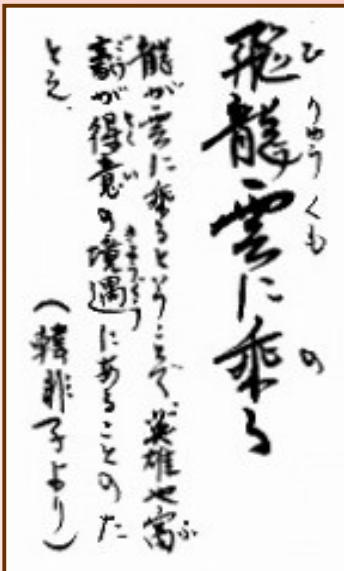 飛龍雲に乗る
ひりゅうくもの
龍が雲に乗るということで、英雄や富
豪が得意の境遇にあることのた
とえ。
(韓非子より)